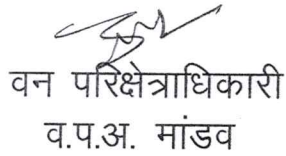 वन परिक्षेत्राधिकारी
व.प.अ. मांडव